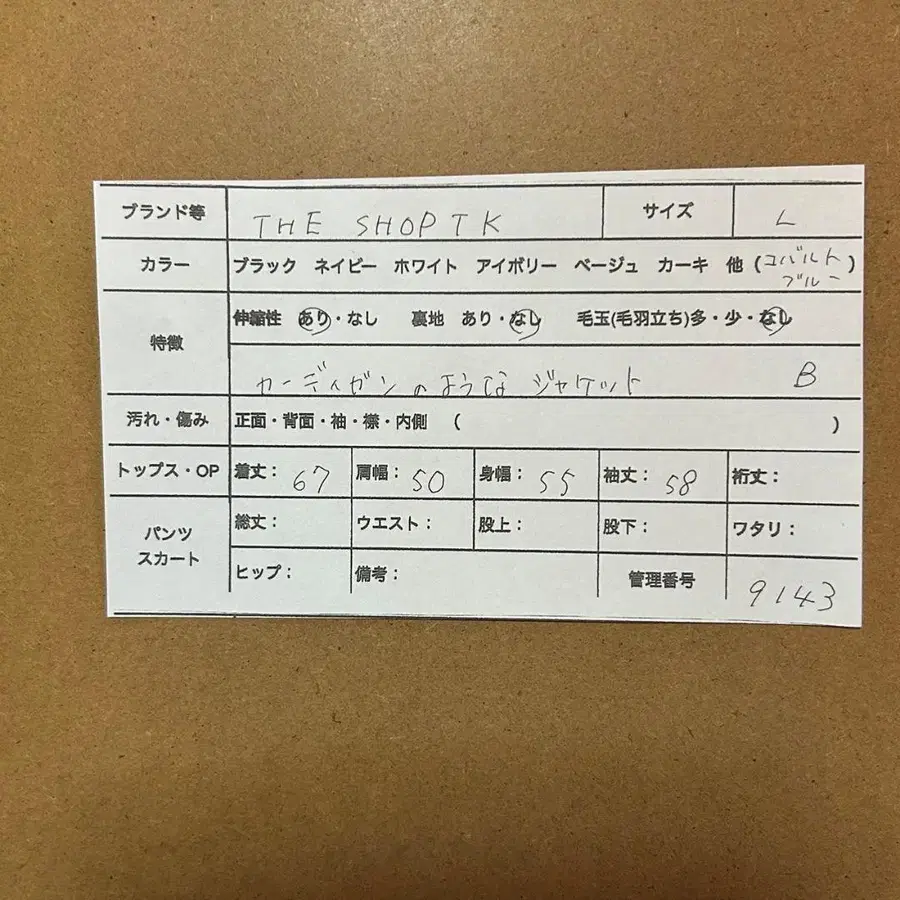 ブランド等 THE SHOP TK サイズ L
カラー ブラック ネイビー ホワイト アイボリー ベージュ カーキ 他 (コバルト
ブルー)
特徴 伸縮性 あり・なし 裏地 あり・なし 毛玉(毛羽立ち)多・少・なし
カーディガンのようなジャケット B
汚れ・傷み 正面・背面・袖・襟・内側 ( )
トップス・OP 着丈: 67 肩幅: 50 身幅: 55 袖丈: 58 裄丈:
パンツ
スカート
総丈: ウエスト: 股上: 股下: ワタリ:
ヒップ: 備考: 管理番号 9143